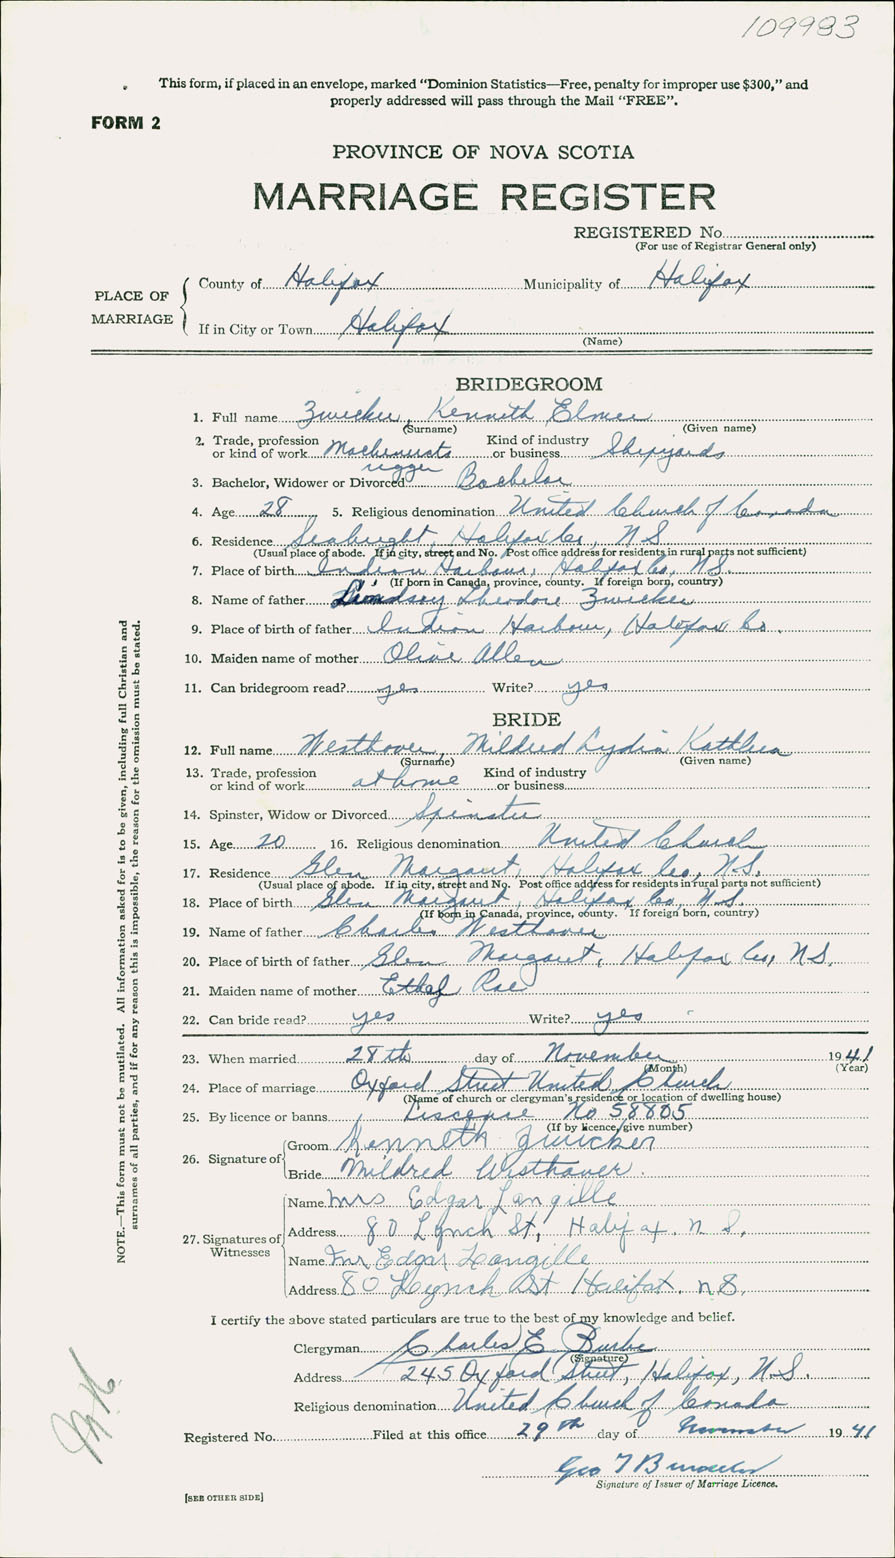 109983
This form, if placed in an envelope, marked “Dominion Statistics—Free, penalty for improper use $300,” and
properly addressed will pass through the Mail “FREE”.
FORM 2
PROVINCE OF NOVA SCOTIA
MARRIAGE REGISTER
REGISTERED No.
(For use of Registrar General only)
PLACE OF MARRIAGE
County of Halifax Municipality of Halifax
If in City or Town Halifax
(Name)
BRIDEGROOM
1. Full name Zwicker, Kenneth Elmer
(Surname) (Given name)
2. Trade, profession or kind of work Machinists rigger Kind of industry or business Shipyards
3. Bachelor, Widower or Divorced Bachelor
4. Age 28 5. Religious denomination United Church of Canada
6. Residence Seabright, Halifax Co., N S
(Usual place of abode. If in city, street and No. Post office address for residents in rural parts not sufficient)
7. Place of birth Indian Harbour, Halifax Co., N.S.
(If born in Canada, province, county. If foreign born, country)
8. Name of father Lindsay Theodore Zwicker
9. Place of birth of father Indian Harbour, Halifax Co.
10. Maiden name of mother Olive Allen
11. Can bridegroom read? yes Write? yes
BRIDE
12. Full name Westhaver, Mildred Lydia Kathleen
(Surname) (Given name)
13. Trade, profession or kind of work at home Kind of industry or business
14. Spinster, Widow or Divorced Spinster
15. Age 20 16. Religious denomination United Church
17. Residence Glen Margaret, Halifax Co., N.S.
(Usual place of abode. If in city, street and No. Post office address for residents in rural parts not sufficient)
18. Place of birth Glen Margaret, Halifax Co., N.S.
(If born in Canada, province, county. If foreign born, country)
19. Name of father Charles Westhaver
20. Place of birth of father Glen Margaret, Halifax Co., N.S.
21. Maiden name of mother Ethel Rae
22. Can bride read? yes Write? yes
23. When married 28th day of November 1941
(Month) (Year)
24. Place of marriage Oxford Street United Church
(Name of church or clergyman's residence or location of dwelling house)
25. By licence or banns Liscense No 58805
(If by licence, give number)
26. Signature of
Groom Kenneth Zwicker
Bride Mildred Westhaver.
27. Signatures of Witnesses
Name Mrs Edgar Langille
Address 80 Lynch St, Halifax. N S.
Name Mr Edgar Langille
Address 80 Lynch St Halifax. N S.
I certify the above stated particulars are true to the best of my knowledge and belief.
Clergyman Charles E Burke
(Signature)
Address 245 Oxford Street, Halifax, N.S.
Religious denomination United Church of Canada
Registered No. Filed at this office 29th day of November 1941
Geo T
Signature of Issuer of Marriage Licence.
[SEE OTHER SIDE]
NOTE.—This form must not be mutilated. All information asked for is to be given, including full Christian and
surnames of all parties, and if for any reason this is impossible, the reason for the omission must be stated.